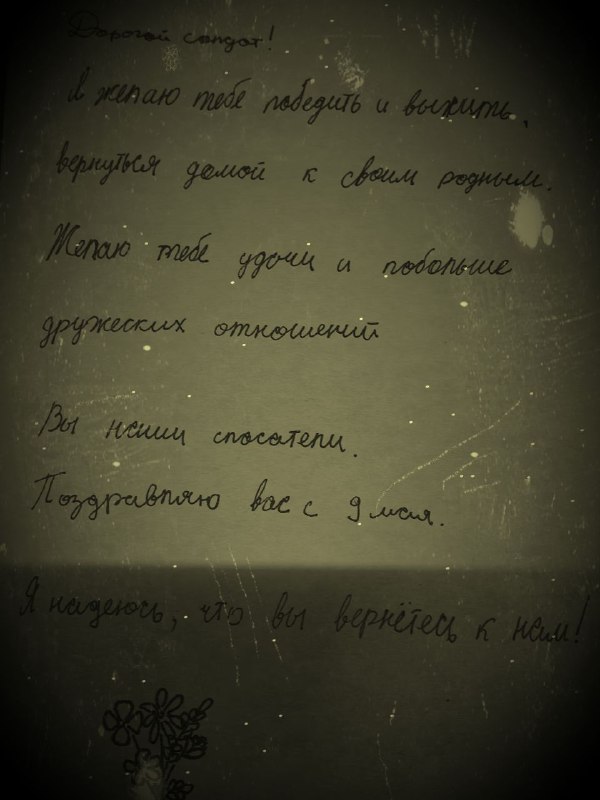 Дорогой солдат!
Я желаю тебе победить и выжить,
вернуться домой к своим родным.
Желаю тебе удачи и побольше
дружеских отношений
Вы наши спасатели.
Поздравляю вас с 9 мая.
Я надеюсь, что вы вернётесь к нам!